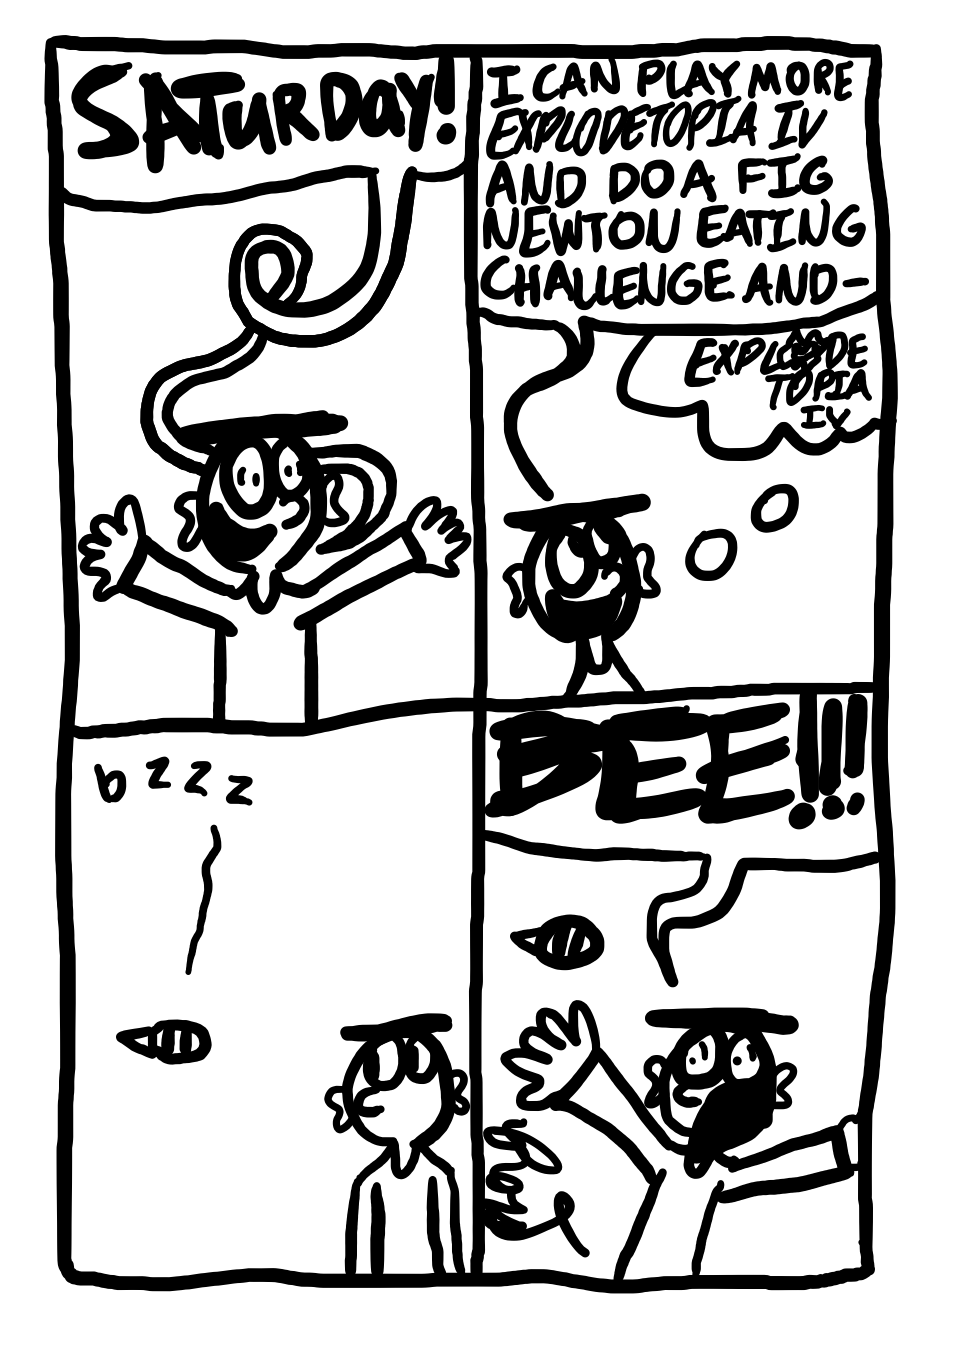 SATURDAY!
I CAN PLAY MORE
EXPLODETOPIA IV
AND DO A FIG
NEWTOU EATING
CHALLENGE AND-
EXPLODE
TOPIA
IV
bzzz
BEE!!!